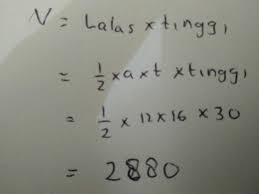 V = Lalas x tinggi
= 1/2 x a x t x tinggi
= 1/2 x 12 x 16 x 30
= 2880